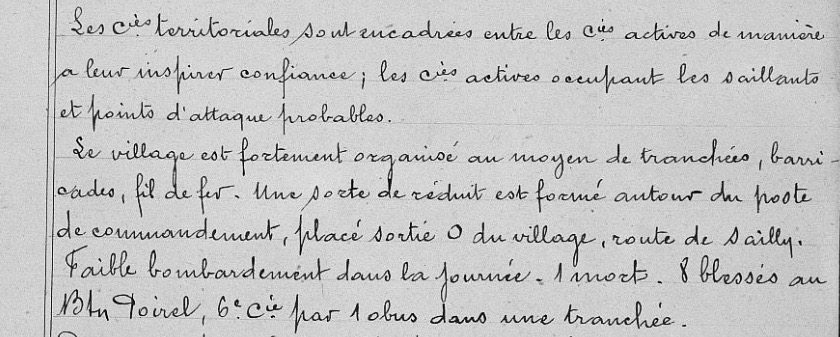 Les Cies territoriales sont encadrées entre les Cies actives de manière
a leur inspirer confiance ; les Cies actives occupant les saillants
et points d'attaque probables.
Le village est fortement organisé au moyen de tranchées, barri-
cades, fil de fer. Une sorte de réduit est formé autour du poste
de commandement, placé sortie O du village, route de Sailly.
Faible bombardement dans la journée. 1 mort. 8 blessés au
Btn Poirel, 6e Cie par 1 obus dans une tranchée.